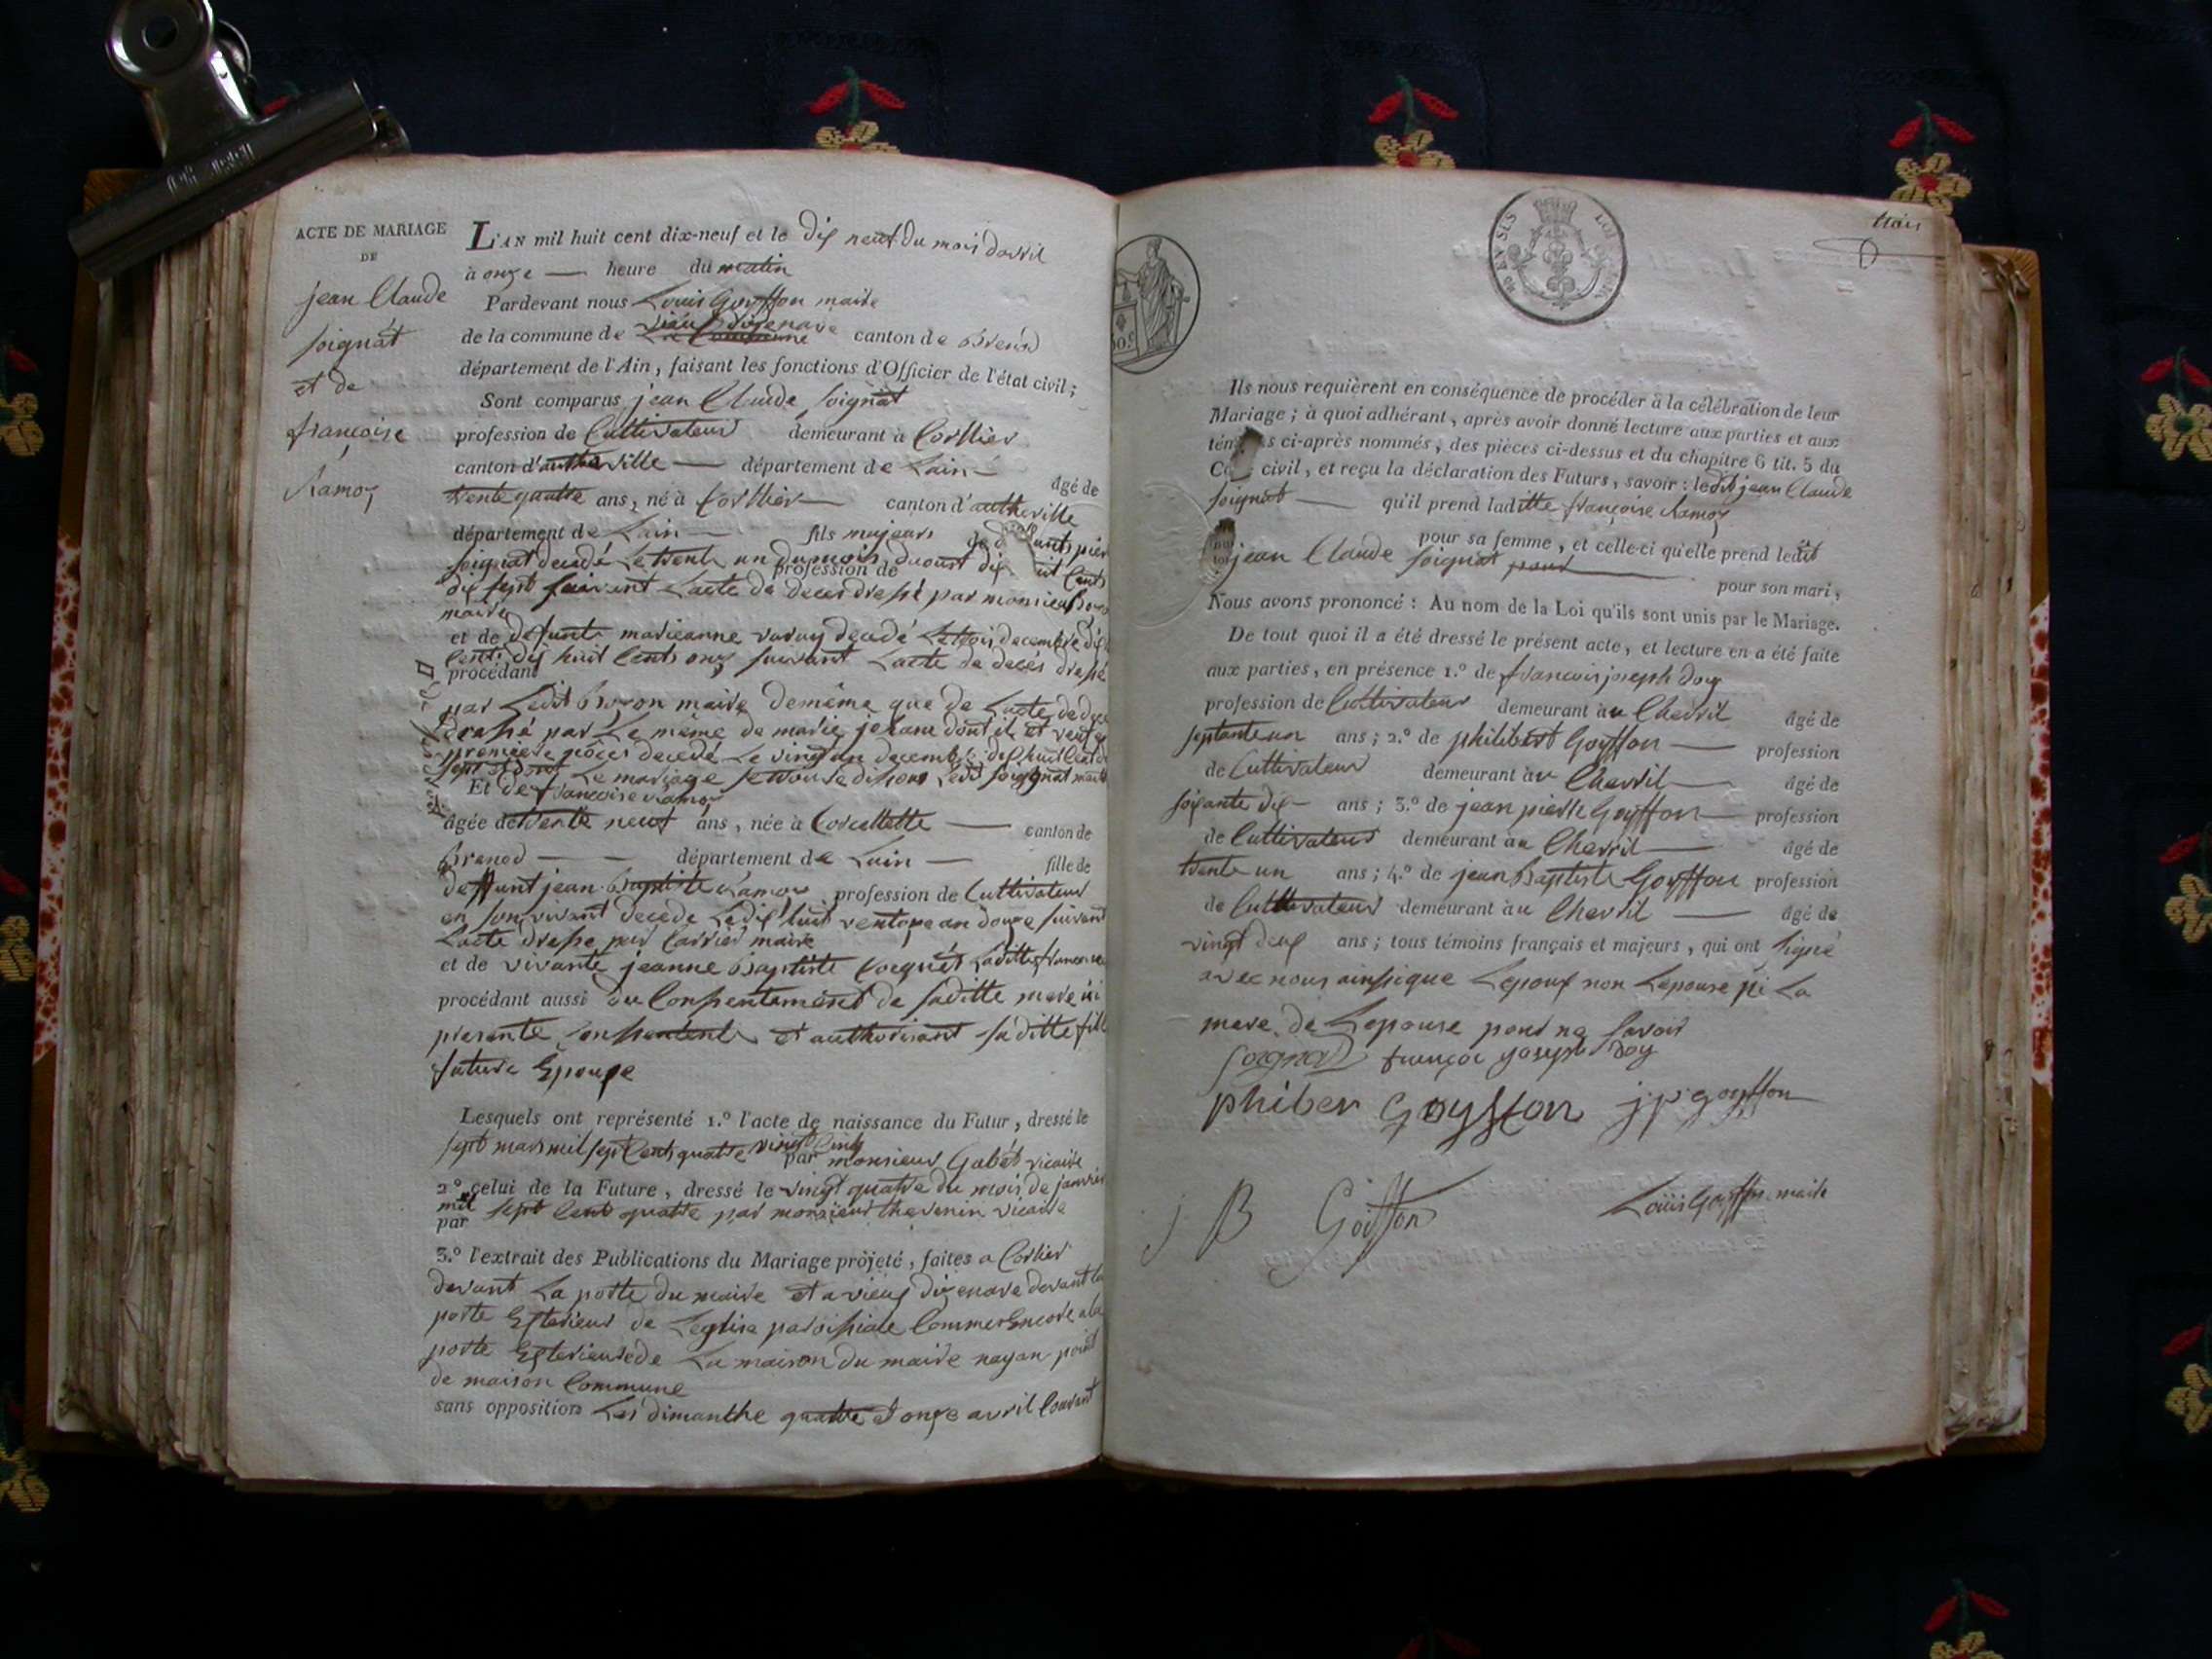 ACTE DE MARIAGE
DE
jean Claude
soignat
et de
françoise
Ramoz
L'AN mil huit cent dix-neuf et le dix neuf du mois davril
à onze heure du matin
Pardevant nous Louis Goyffon maire
de la commune de vieux dizenave canton de Brenod
département de l'Ain, faisant les fonctions d'Officier de l'état civil;
Sont comparus jean Claude soignat
profession de Cultivateur demeurant à Corllier
canton d'autheville département de Lain âgé de
trente quatre ans, né à Corllier canton d'autheville
département de Lain fils majeur de
soignat decedé Le trente un du mois daoust dix cents
profession de
dix sept suivant Lacte de deces dressé par monsieur
maire
et de defunte marieanne varay decedé Le trois decembre dix
cents dix huit cents onze suivant Lacte de deces dressé
procédant
par Ledit maire demême que de Lacte de
dressé par Le même de marie dont il et veuf
premiere nôces decedé Le vingt un decembre dix huit cent
Le mariage Ledit soignat
Et de françoise Ramoz
âgée de trente neuf ans, née à Corcellette canton de
Brenod département de Lain fille de
deffunt jean Baptiste Ramoz profession de Cultivateur
en son vivant decede Le dix huit ventose an douze suivant
Lacte dresse par Carrier maire
et de vivante jeanne Baptiste Laditte
procédant aussi du Consentement de saditte mere ici
presente Consentente et authorisant saditte fille
future Epouse
Lesquels ont représenté 1.° l'acte de naissance du Futur, dressé le
sept mars mil sept cents quatre vingt cinq
par monsieur Gabet vicaire
2.° celui de la Future, dressé le vingt quatre du mois de janvier
mil sept cent quatre par monsieur thevenin vicaire
par
3.° l'extrait des Publications du Mariage projeté, faites a Corlier
devant La porte du maire et a vieux dizenave devant la
porte Exterieur de Leglise paroissiale Comme Encore a la
porte Exterieurede La maison du maire nayan point
de maison Commune
sans opposition Les dimanthe quatre et onze avril Courant
trois
Ils nous requièrent en conséquence de procéder à la célébration de leur
Mariage; à quoi adhérant, après avoir donné lecture aux parties et aux
tém s ci-après nommés, des pièces ci-dessus et du chapitre 6 tit. 5 du
Co civil, et reçu la déclaration des Futurs, savoir: ledit jean Claude
soignat qu'il prend laditte françoise Ramoz
pour sa femme, et celle-ci qu'elle prend ledit
jean Claude soignat pour
pour son mari,
Nous avons prononcé: Au nom de la Loi qu'ils sont unis par le Mariage.
De tout quoi il a été dressé le présent acte, et lecture en a été faite
aux parties, en présence 1.° de francois joseph Doy
profession de Cultivateur demeurant au Chevril âgé de
septante un ans; 2.° de philibert Goyffon profession
de Cultivateur demeurant au Chevril âgé de
soixante dix ans; 3.° de jean pierre Goyffon profession
de Cultivateur demeurant au Chevril âgé de
trente un ans; 4.° de jean Baptiste Goyffon profession
de Cultivateur demeurant au Chevril âgé de
vingt deux ans; tous témoins français et majeurs, qui ont signé
avec nous ainssique Lepoux non Lepouse ni La
mere de Lepouse pour ne savoir
Soignat françoi yoseph Doy
phiber Goyffon j p goyffon
J B Goiffon Louis Goyffon maire